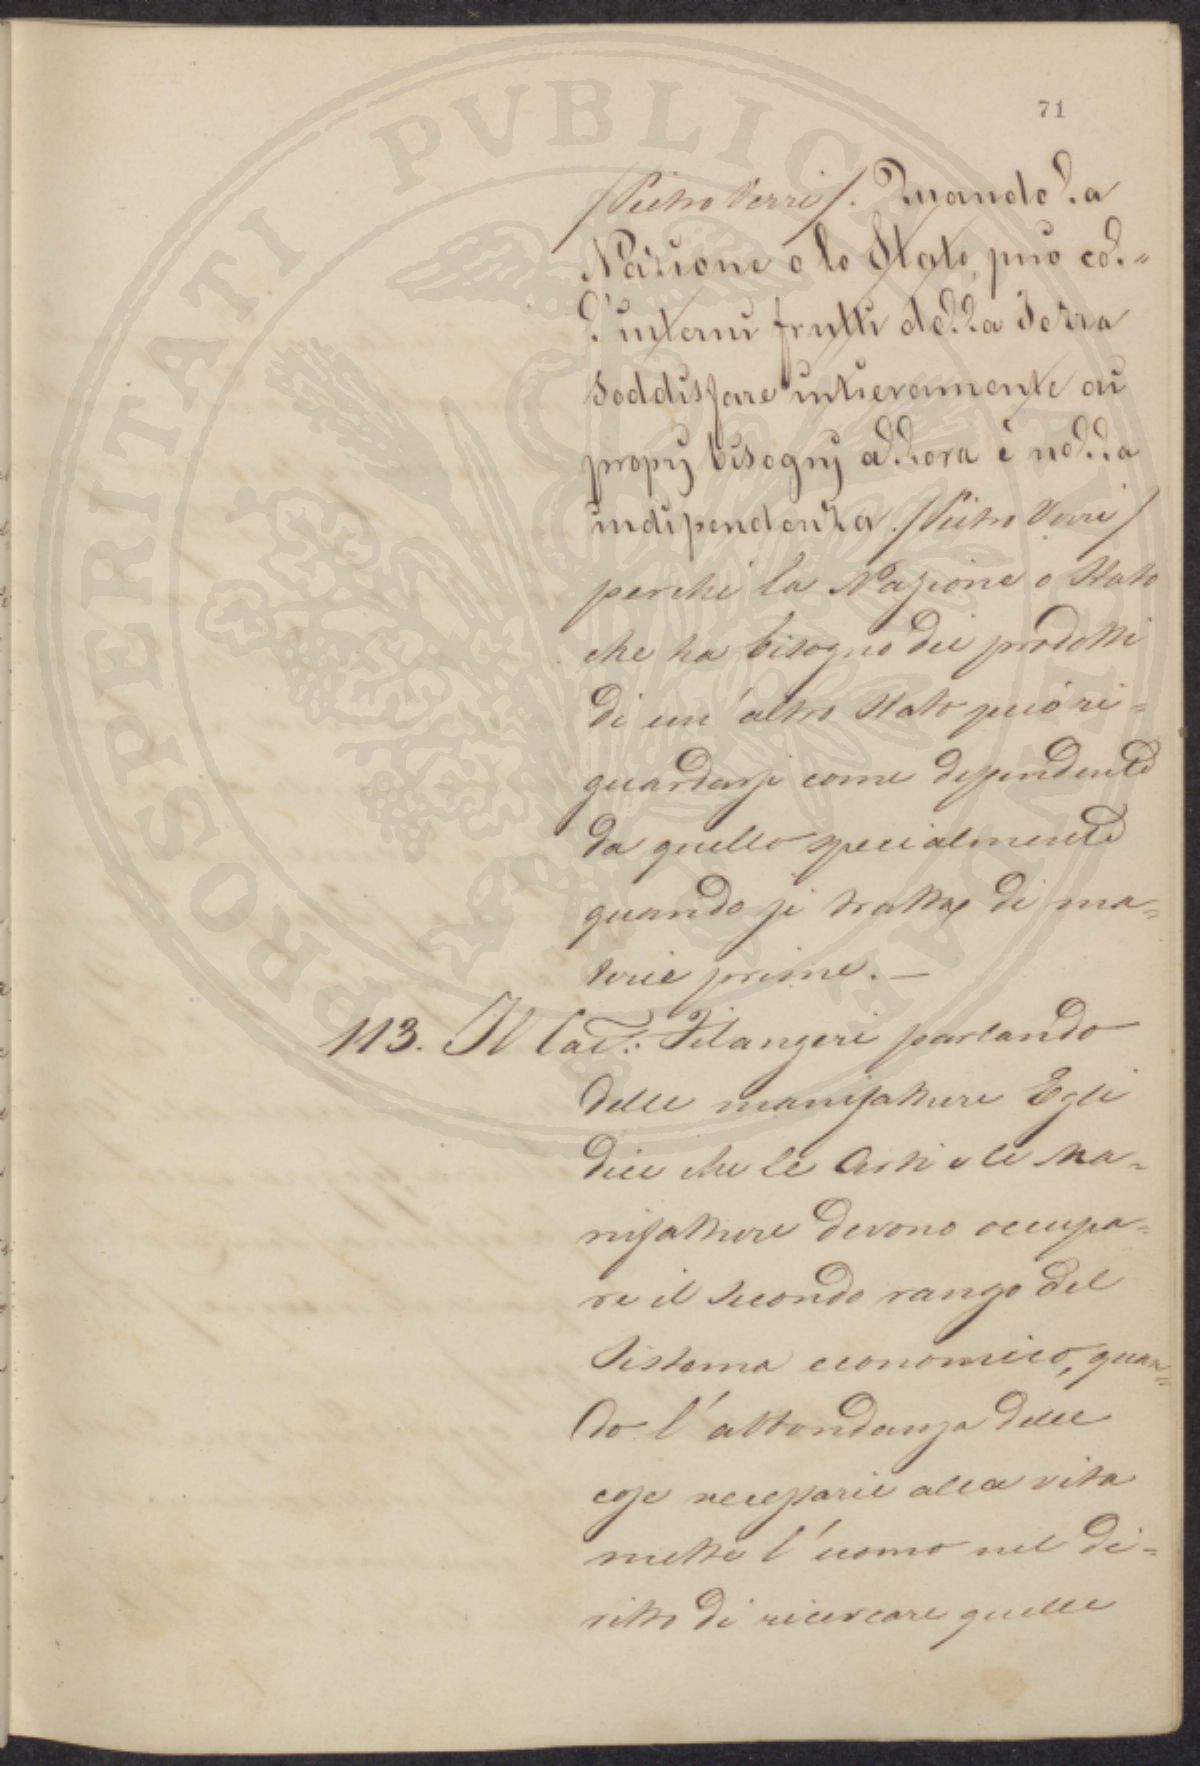 71
/Pietro Verri/. Quando la
Nazione o lo Stato può co=
l'interni frutti della Terra
soddisfare intieramente ai
proprj bisognj allora è nella
indipendenza. /Pietro Verri/
perchè la Nazione o Stato
che ha bisogno dei prodotti
di un'altro Stato può ri=
guardarsi come dipendente
da quello specialmente
quando si tratta di ma=
terie prime. —
113. Il Cav: Filangeri parlando
delle manifatture Egli
dice che le Arti e le Ma=
nifatture devono occupa=
re il secondo rango del
Sistema economico, quan=
do l'abbondanza delle
cose necessarie alla vita
mette l'uomo nel di=
ritto di ricercare quelle
PROSPERITATI PVBLICAE AVGENDAE